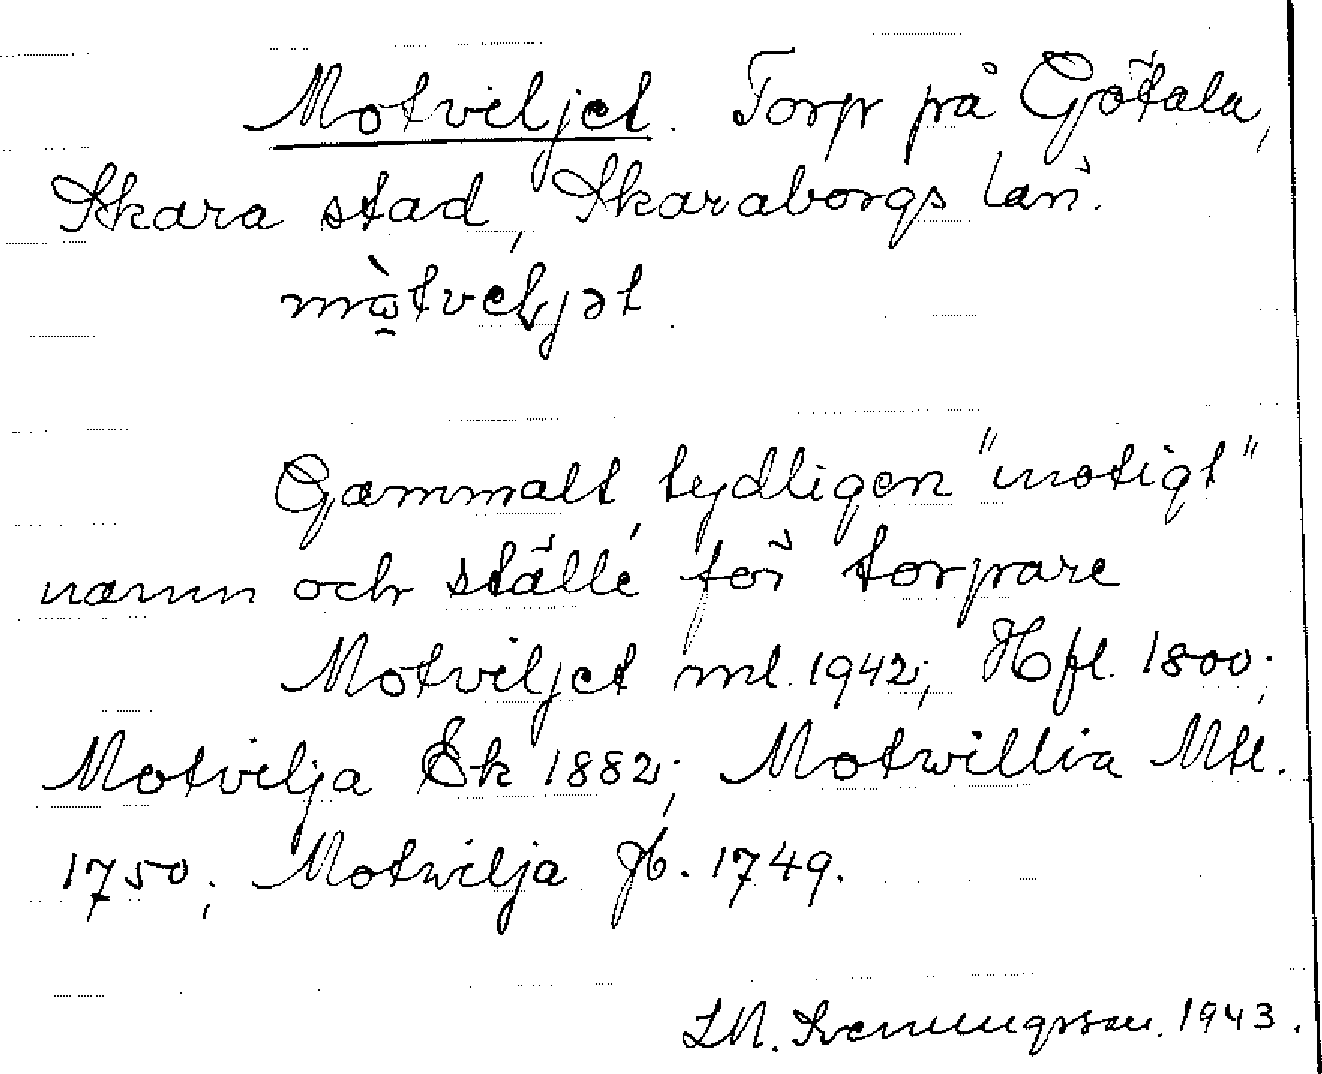 Motviljet. Torp på Götala,
Skara stad, Skaraborgs län.
mὼtveljət.
Gammalt, tydligen "motigt"
namn och ställe för torpare
Motviljet ml. 1942; Hfl. 1800;
Motvilja Ek 1882; Motwillia Mtl.
1750; Motwilja fb. 1749.
1943.